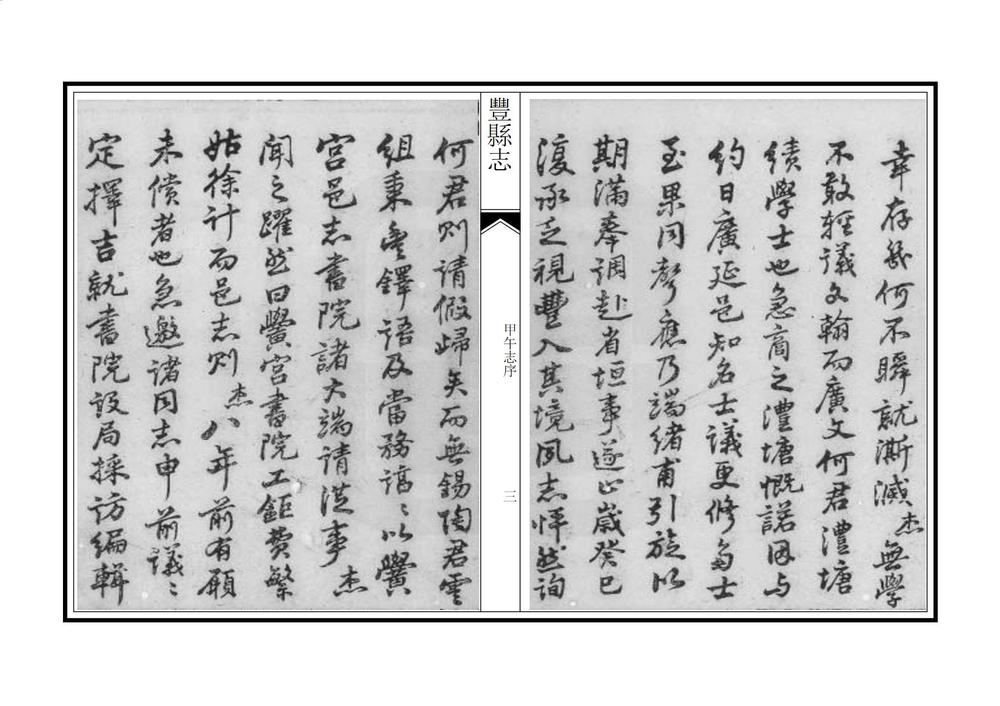 幸存幾何不瞬就澌滅杰無學
不敢輕議文翰而廣文何君澧塘
績學士也急商之澧塘慨諾因与
約日廣延邑知名士議更修多士
至果同聲應乃端緒甫引旋以
期滿奉調赴省垣事遂止歲癸巳
復承乏視豐入其境夙志怦然詢
豐縣志
甲午志序
三
何君則請假歸矣而無錫陶君雲
組秉鐸語及當務諄〻以黌
宮邑志書院諸大端請從事杰
聞之躍然曰黌宮書院工鉅費繁
姑徐計而邑志則杰八年前有願
未償者也急邀諸同志申前議〻
定擇吉就書院設局採訪編輯